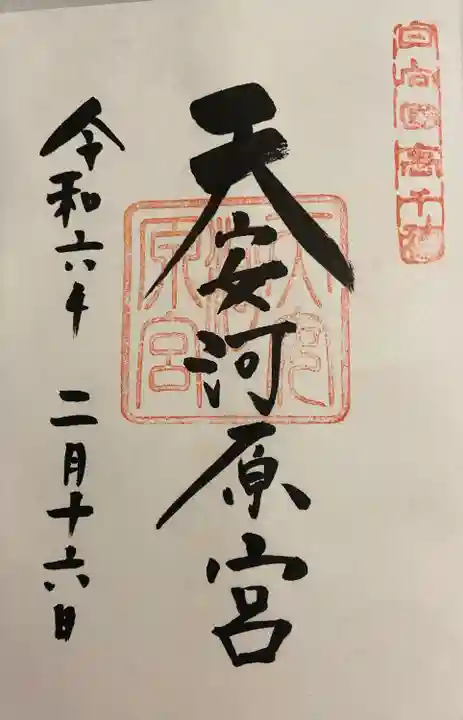 日向國高千穂
天安河原宮
令和六年 二月十六日